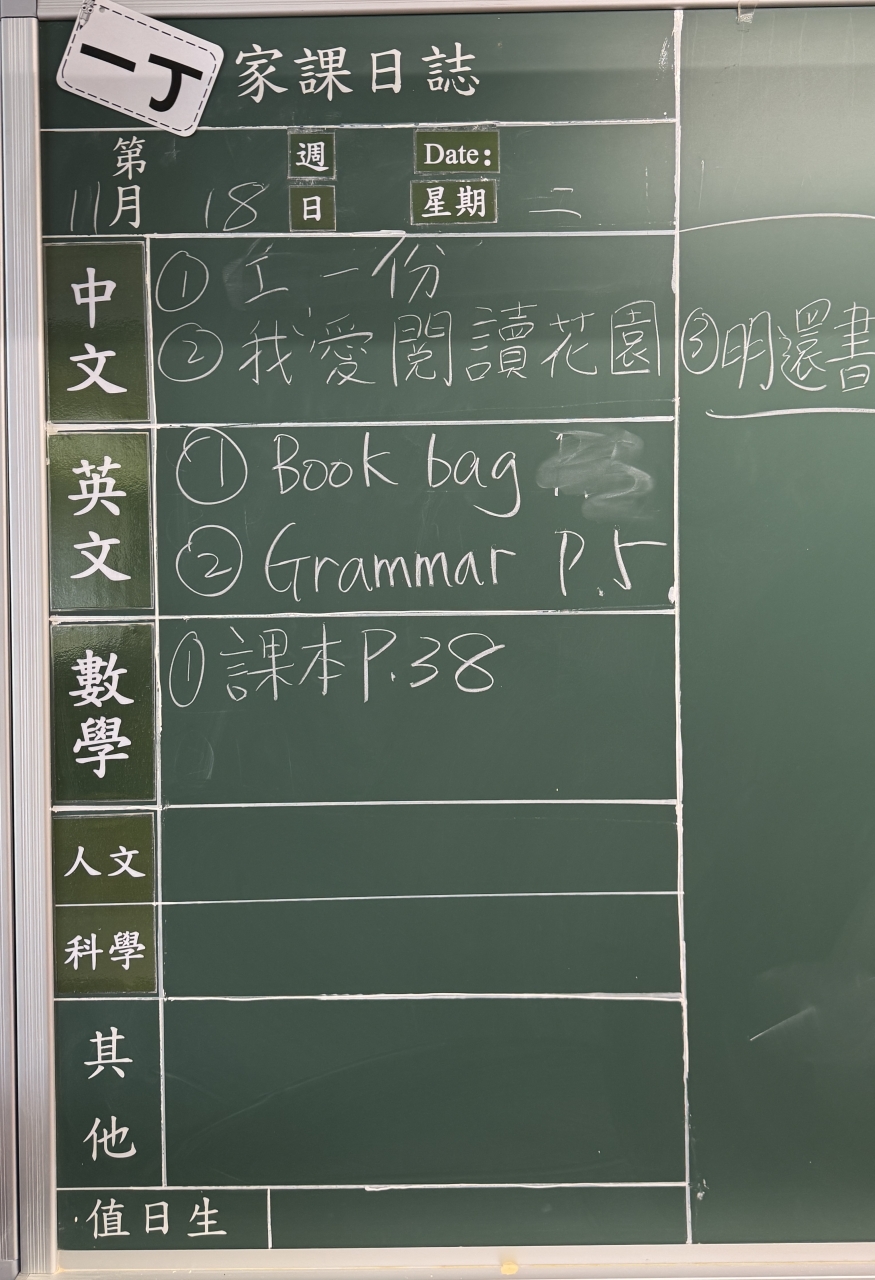 一丁
家課日誌
第 週 Date:
11月 18 日 星期 二
中文
① 工一份
② 我愛閱讀花園 ③明還書
英文
① Book bag
② Grammar P.5
數學
① 課本P.38
人文
科學
其他
值日生